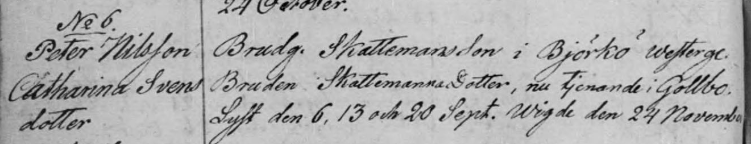 24 October.
No 6.
Peter Nilsson
Catharina Svens
dotter
Brudg. Skattemansson i Björkö westerge.
Bruden Skattemans Dotter, nu tjenande i Gollbo.
Lyst den 6, 13 och 20 Sept. Wigde den 24 Novembe